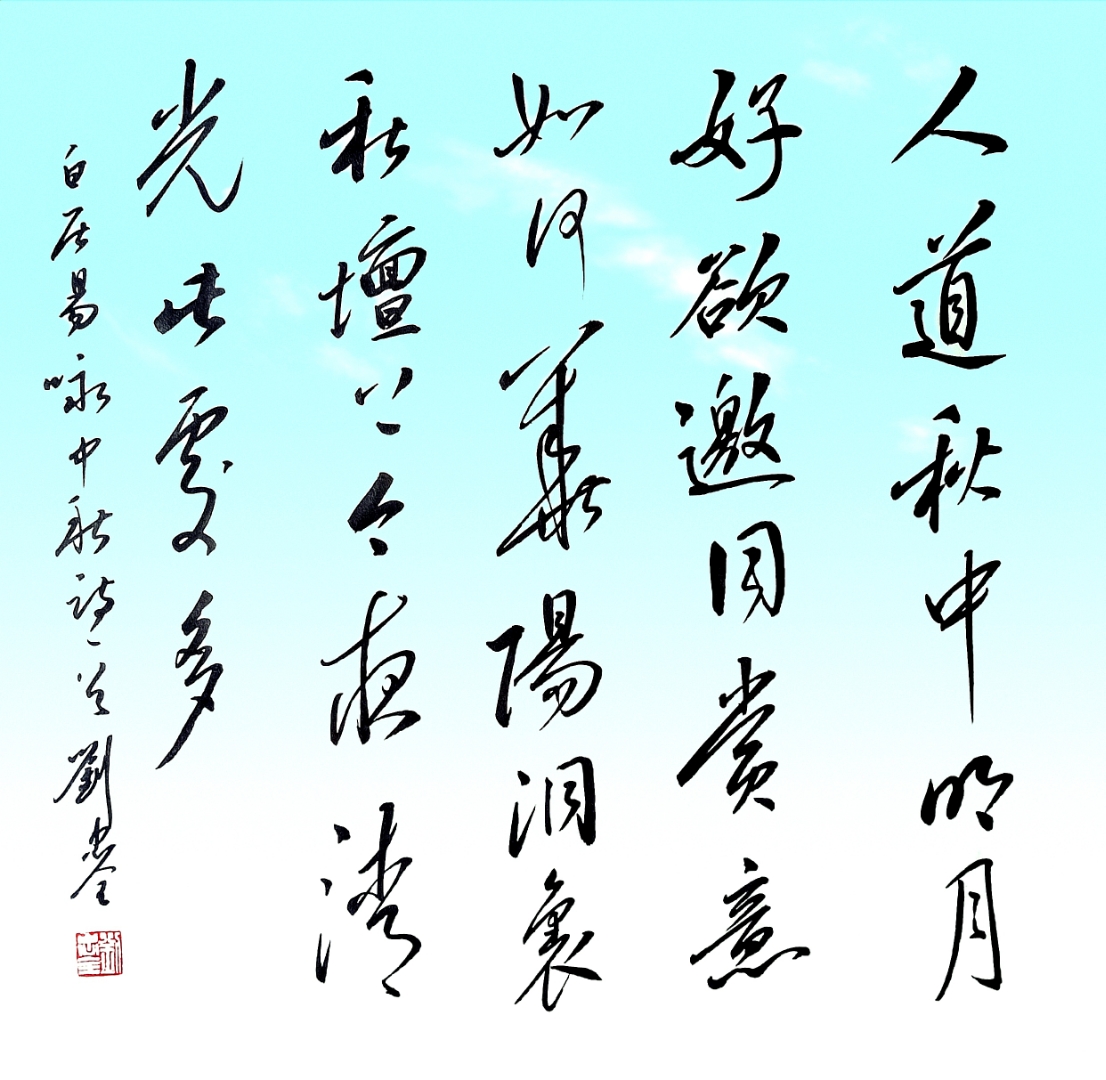 人道秋中明月
好欲邀同賞意
如何華陽洞裏
秋壇上今夜清
光此處多
白居易咏中秋詩一首 劉忠全